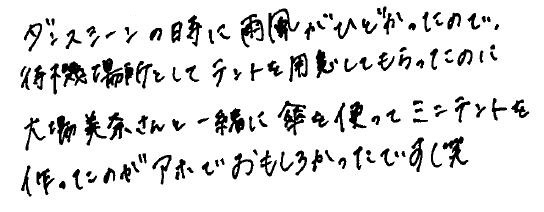 ダンスシーンの時に雨風がひどかったので、
待機場所としてテントを用意してもらったのに
大場美奈さんと一緒に傘を使ってミニテントを
作ったのがアホでおもしろかったですし笑